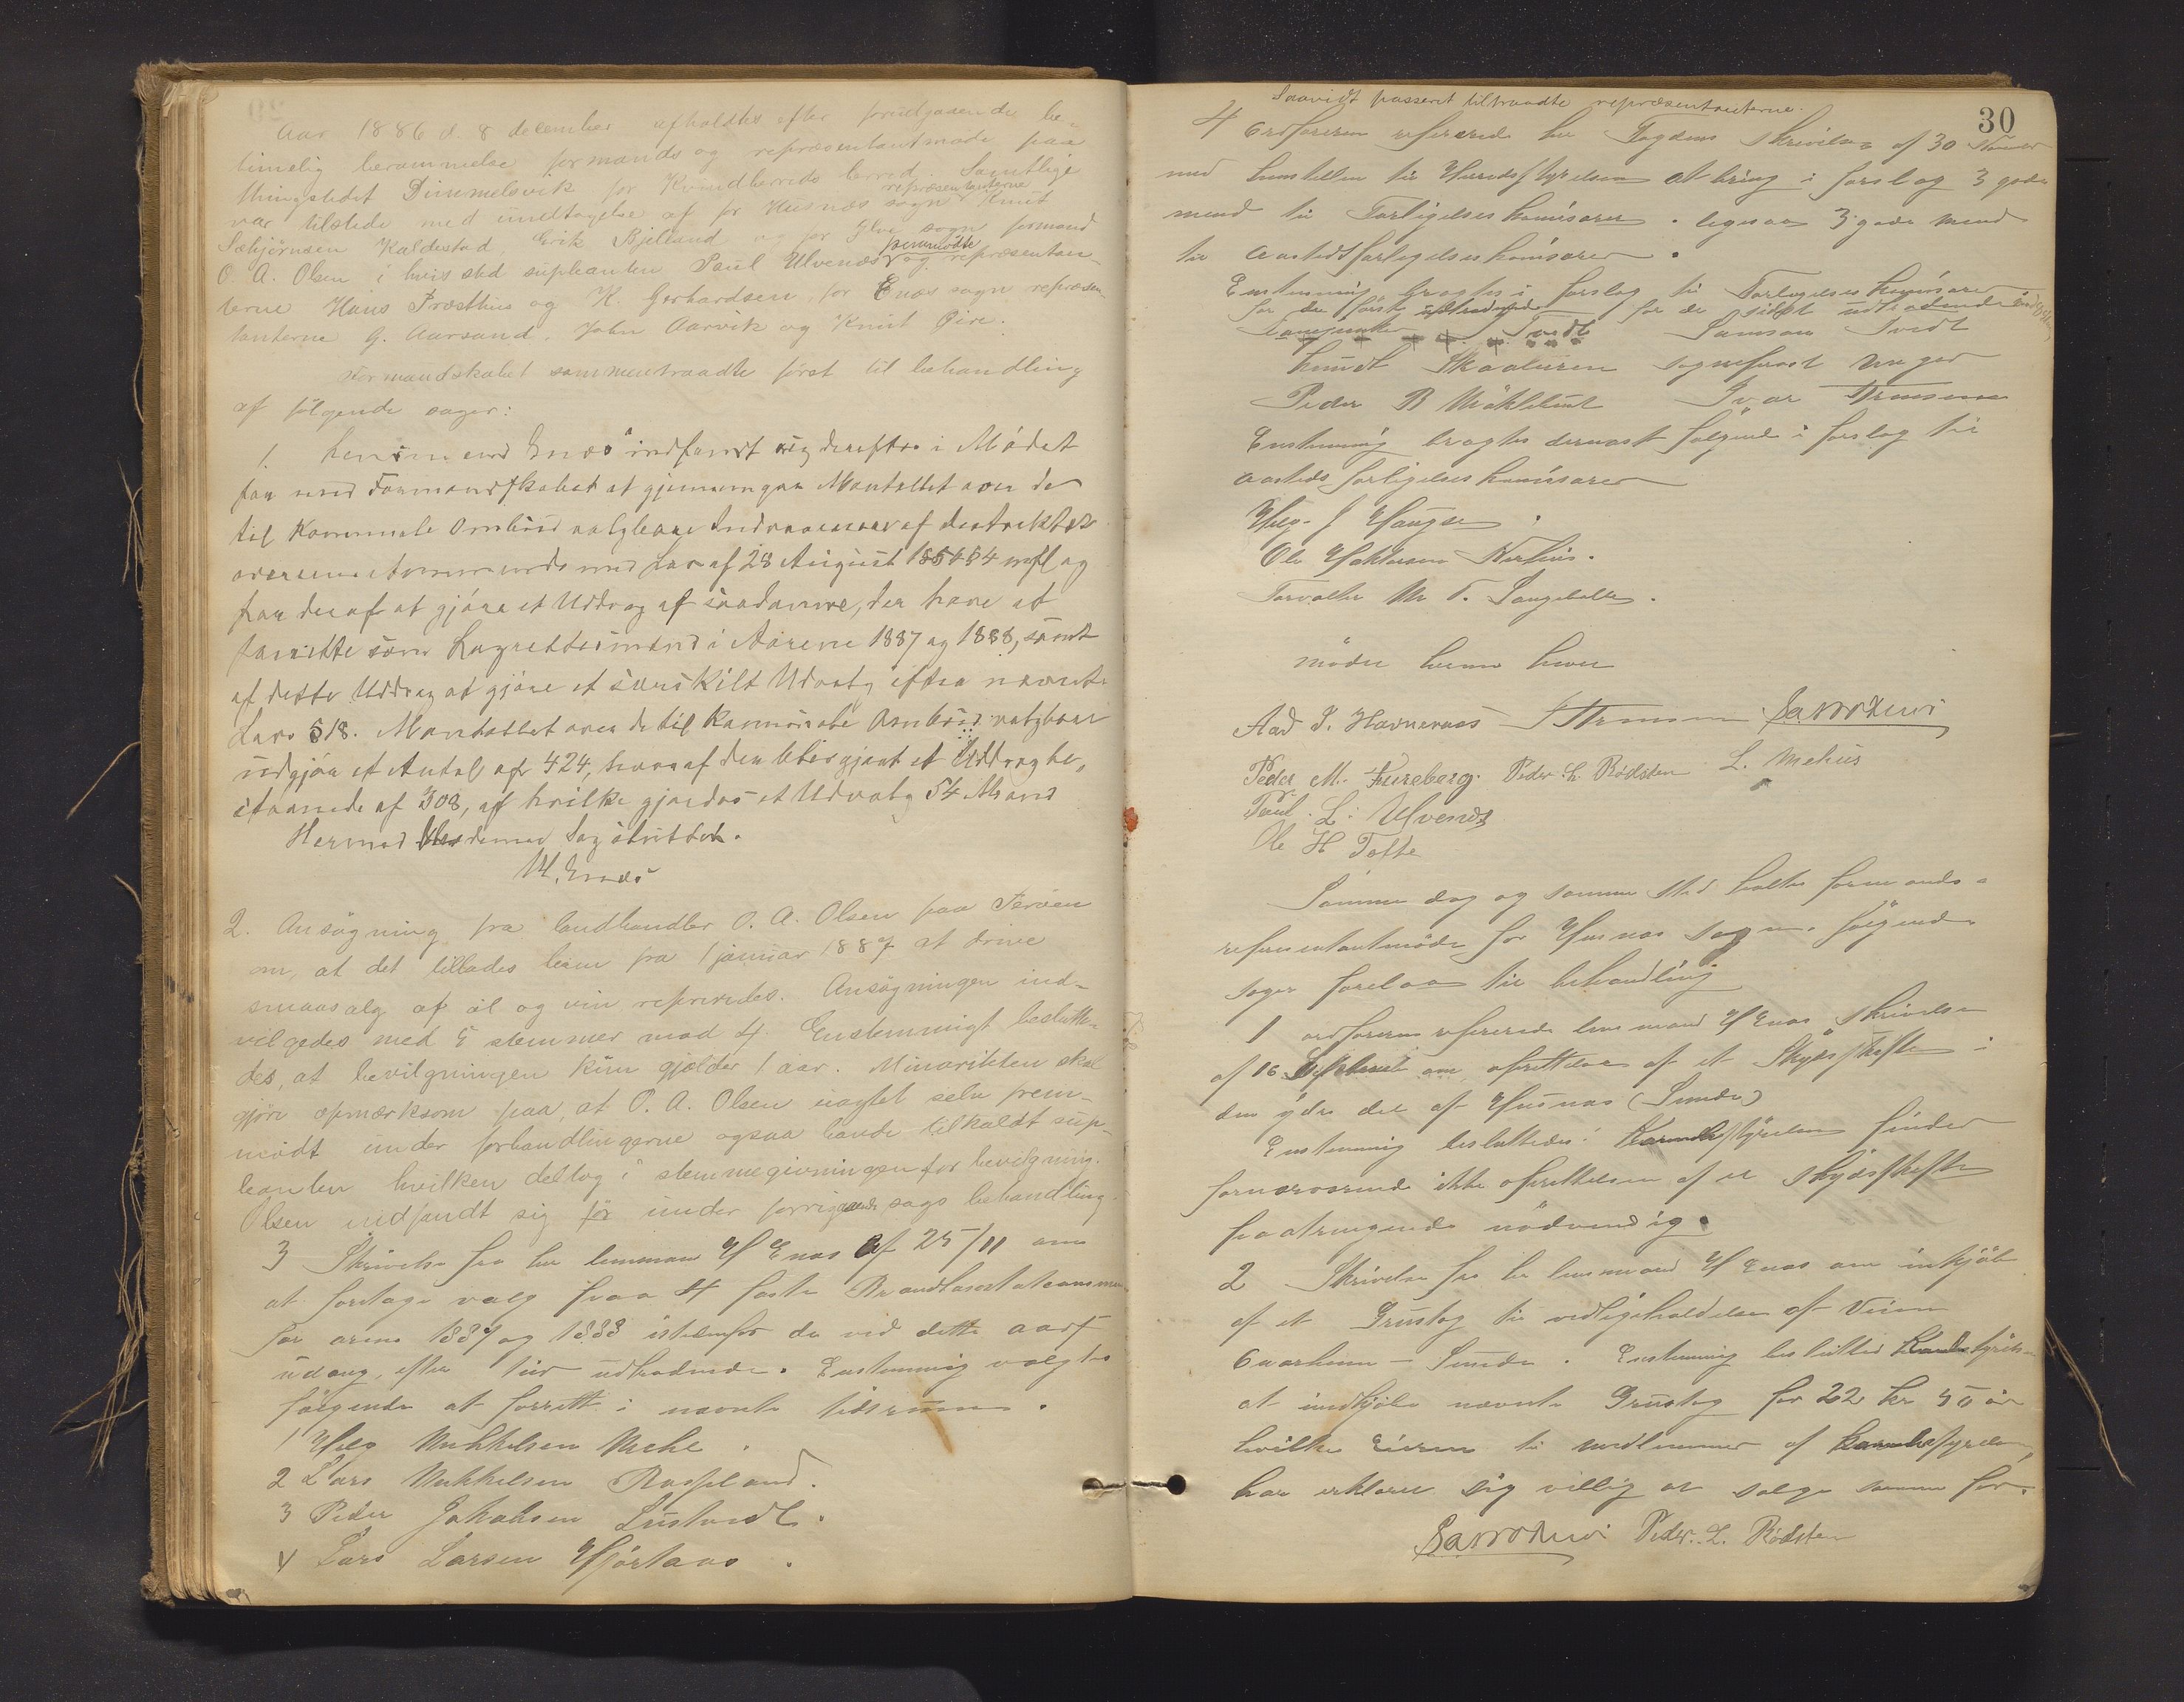 Aar 1886 d. 8 december afholdtes efter forudgaaende be-
timelig berammelse formands og repræsentantmøde paa
thingstedet Dimmelsvik for Kvindherreds herred. Samtlige
var tilstede med undtagelse af for Husnæs sogn repræsentanterne Knut
Sæbjörnsen Kaldestad, Erik Bjelland og for Ølve sogn formand
O. A. Olsen i hvis sted supleanten Paul Ulvenæs fremmødte og repræsentan-
terne Hans Præsthus og K. Gerhardsen, for Enæs sogn repræsen-
tanterne G. Aarsand, John Aarvik og Knut Øire.
Formandskabet sammentraadte først til behandling
af følgende sager:
1. Lensmand Enæs indfandt sig derefter i Mödet
for med Formandskabet at gjennemgaa Mantallet over de
til Kommunale Ombud valgbare Indvaanere af distriktet
overensstemmende med Lov af 28 August 1854 mfl og
for deraf at gjöre et Uddrag af saadanne, der have at
forrette som Lagrettesmænd i Aarene 1887 og 1888, samt
af dette Uddrag at gjöre et særskilt Udvalg efter nævnte
Lovs § 18. Mandtallet over de til kommunale Ombud valgbare
udgjör et Antal af 424, hvoraf den blev gjort et Uddrag be-
staaende af 308, af hvilke gjordes et Udvalg 54 Mænd
Hermed denne Sag sluttet.
M. Enæs
2. Ansögning fra landhandler O. A. Olsen paa Teröen
om, at det tillades ham fra 1 januar 1887 at drive
smaasalg af øl og vin refereredes. Ansögningen ind-
vilgedes med 5 stemmer mod 4. Enstemmigt beslutte-
des, at bevilgningen kun gjælder 1 aar. Minoriteten skal
gjöre opmærksom paa, at O. A. Olsen uagtet selv frem-
mödt under forhandlingerne ogsaa havde tilkaldt sup-
leanten hvilken deltog i stemmegivningen for bevilgning.
Olsen indfandt sig før under forrigaaende sags behandling.
3 Skrivelse fra hr lensmand H Enæs af 25/11 om
at foretage valg paa 4 faste Brandtaxtationsmænd
for arene 1887 og 1888 istedenfor de ved dette aars
udgang, efter tur udtrædende. Enstemmig valgtes
fölgende at forrette i nævnte tidsrum.
1 Helg Mikkelsen Mehl.
2 Lars Mikkelsen
3 Peder Johansen Lustvedt.
4 Lars Larsen Hjortaas.
30
Saavidt passeret tiltraadte repræsentanterne.
4 Ordføreren refererede hr Fogdens skrivelse af 30
med henstillen til Herredsstyrelsen at bringe i forslag 3 gode
mænd til Forligelseskomisærer. ligesaa 3 gode mænd
til aastedsforligelseskomisærer.
Enstemmig bragtes i forslag til Forligelseskomisærer
for de først udtrædende for de sidst udtrædende
Tvedt Samson Tvedt
Knudt Skaaluren sogneprest Unger
Peder B Møklebust Ivar
Enstemmig bragtes dernæst følgende i forslag til
aasteds forligelseskomisærer
Helg J Haugse.
Ole Hakkesen
Torvalle M. T. Sangolt.
møder hermed hævet
Aad J. Havneraas
Peder M. Fureberg. Peder L. Rødsten L. Mehus
Paul L. Ulvenæs
Ole H Tofte
Samme dag og samme sted holdtes formands-
representantmöde for Husnæs sogn. følgende
sager forelaa til behandling
1 ordføreren refererede lensmand H Enæs skrivelse
af 16 om oprettelse af et Skydsskifte i
den ydre del af Husnæs (Sunde)
Enstemmig besluttedes: styrelsen finder
fornærværende ikke oprettelsen af et skydsskifte
paatrengende nödvendig.
2 Skrivelse fra hr lensmand H Enæs om inkjöb
af et Grustag til vedligeholdelse af Veien
– Sunde. Enstemmig besluttet styrelsen
at indkjöbe nævnte Grustag for 22 kr 50 øre
hvilke Eieren til medlemmer af styrelsen
har erklæret sig villig at selge samme for.
Peder L. Rødsten